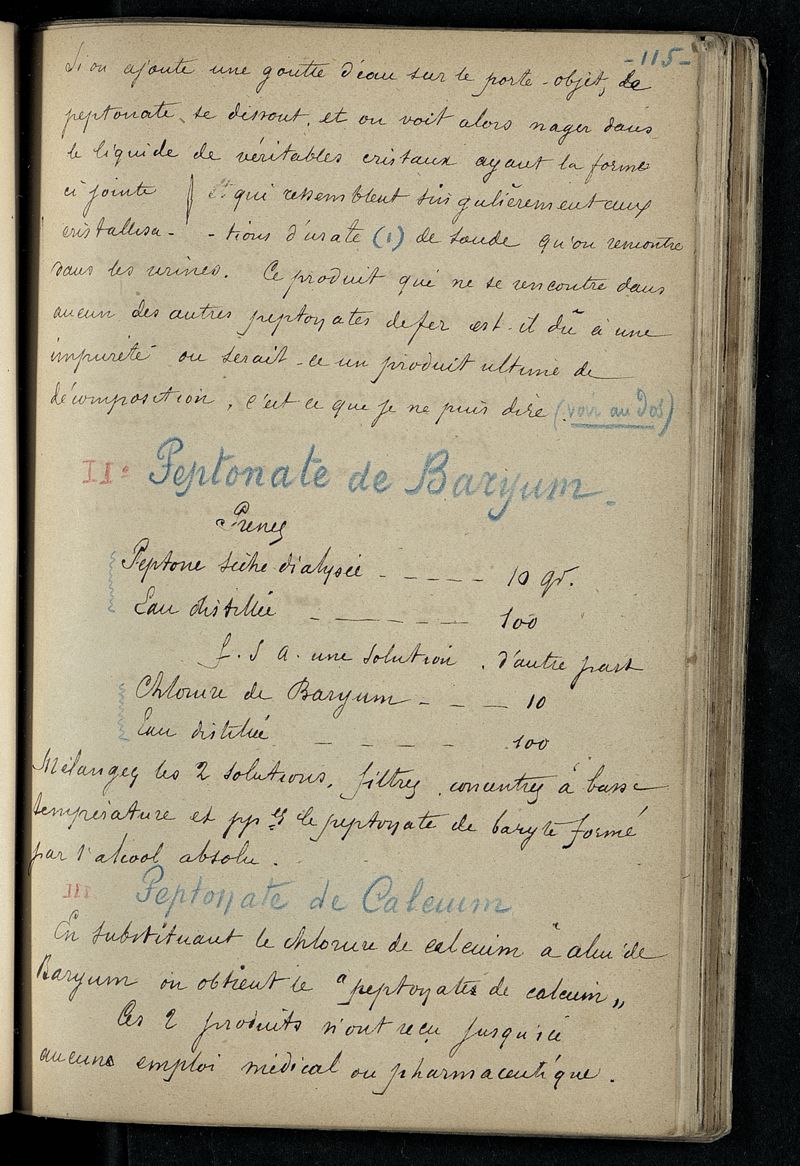 -115-
Si on ajoute une goutte d'eau sur le porte-objet, le
peptonate se dissout, et on voit alors nager dans
le liquide de véritables cristaux ayant la forme
ci jointe et qui ressemblent singulièrement aux
cristallisa- -tions d'urate (1) de soude qu'on remontre
dans les urines. Ce produit qui ne se rencontre dans
aucun des autres peptonates de fer est-il dû à une
impureté ou serait-ce un produit ultime de
décomposition, c'est ce que je ne puis dire (voir au Dos)
II° Peptonate de Baryum.
Prenez
Peptone sèche dialysée - - - - - 10 gr.
Eau distillée - - - - - - - 100
f. S a. une solution. d'autre part
Chlorure de Baryum - - - 10
Eau distillée - - - - 100
Mélangez les 2 solutions, filtrez, concentrez à basse
température et ppez le peptonate de baryte formé
par l'alcool absolu.
III Peptonate de Calcium
En substituant le chlorure de calcium à celui de
Baryum on obtient le "peptonate de calcium"
Ces 2 produits n'ont reçu jusqu'ici
aucune emploi médical ou pharmaceutique.